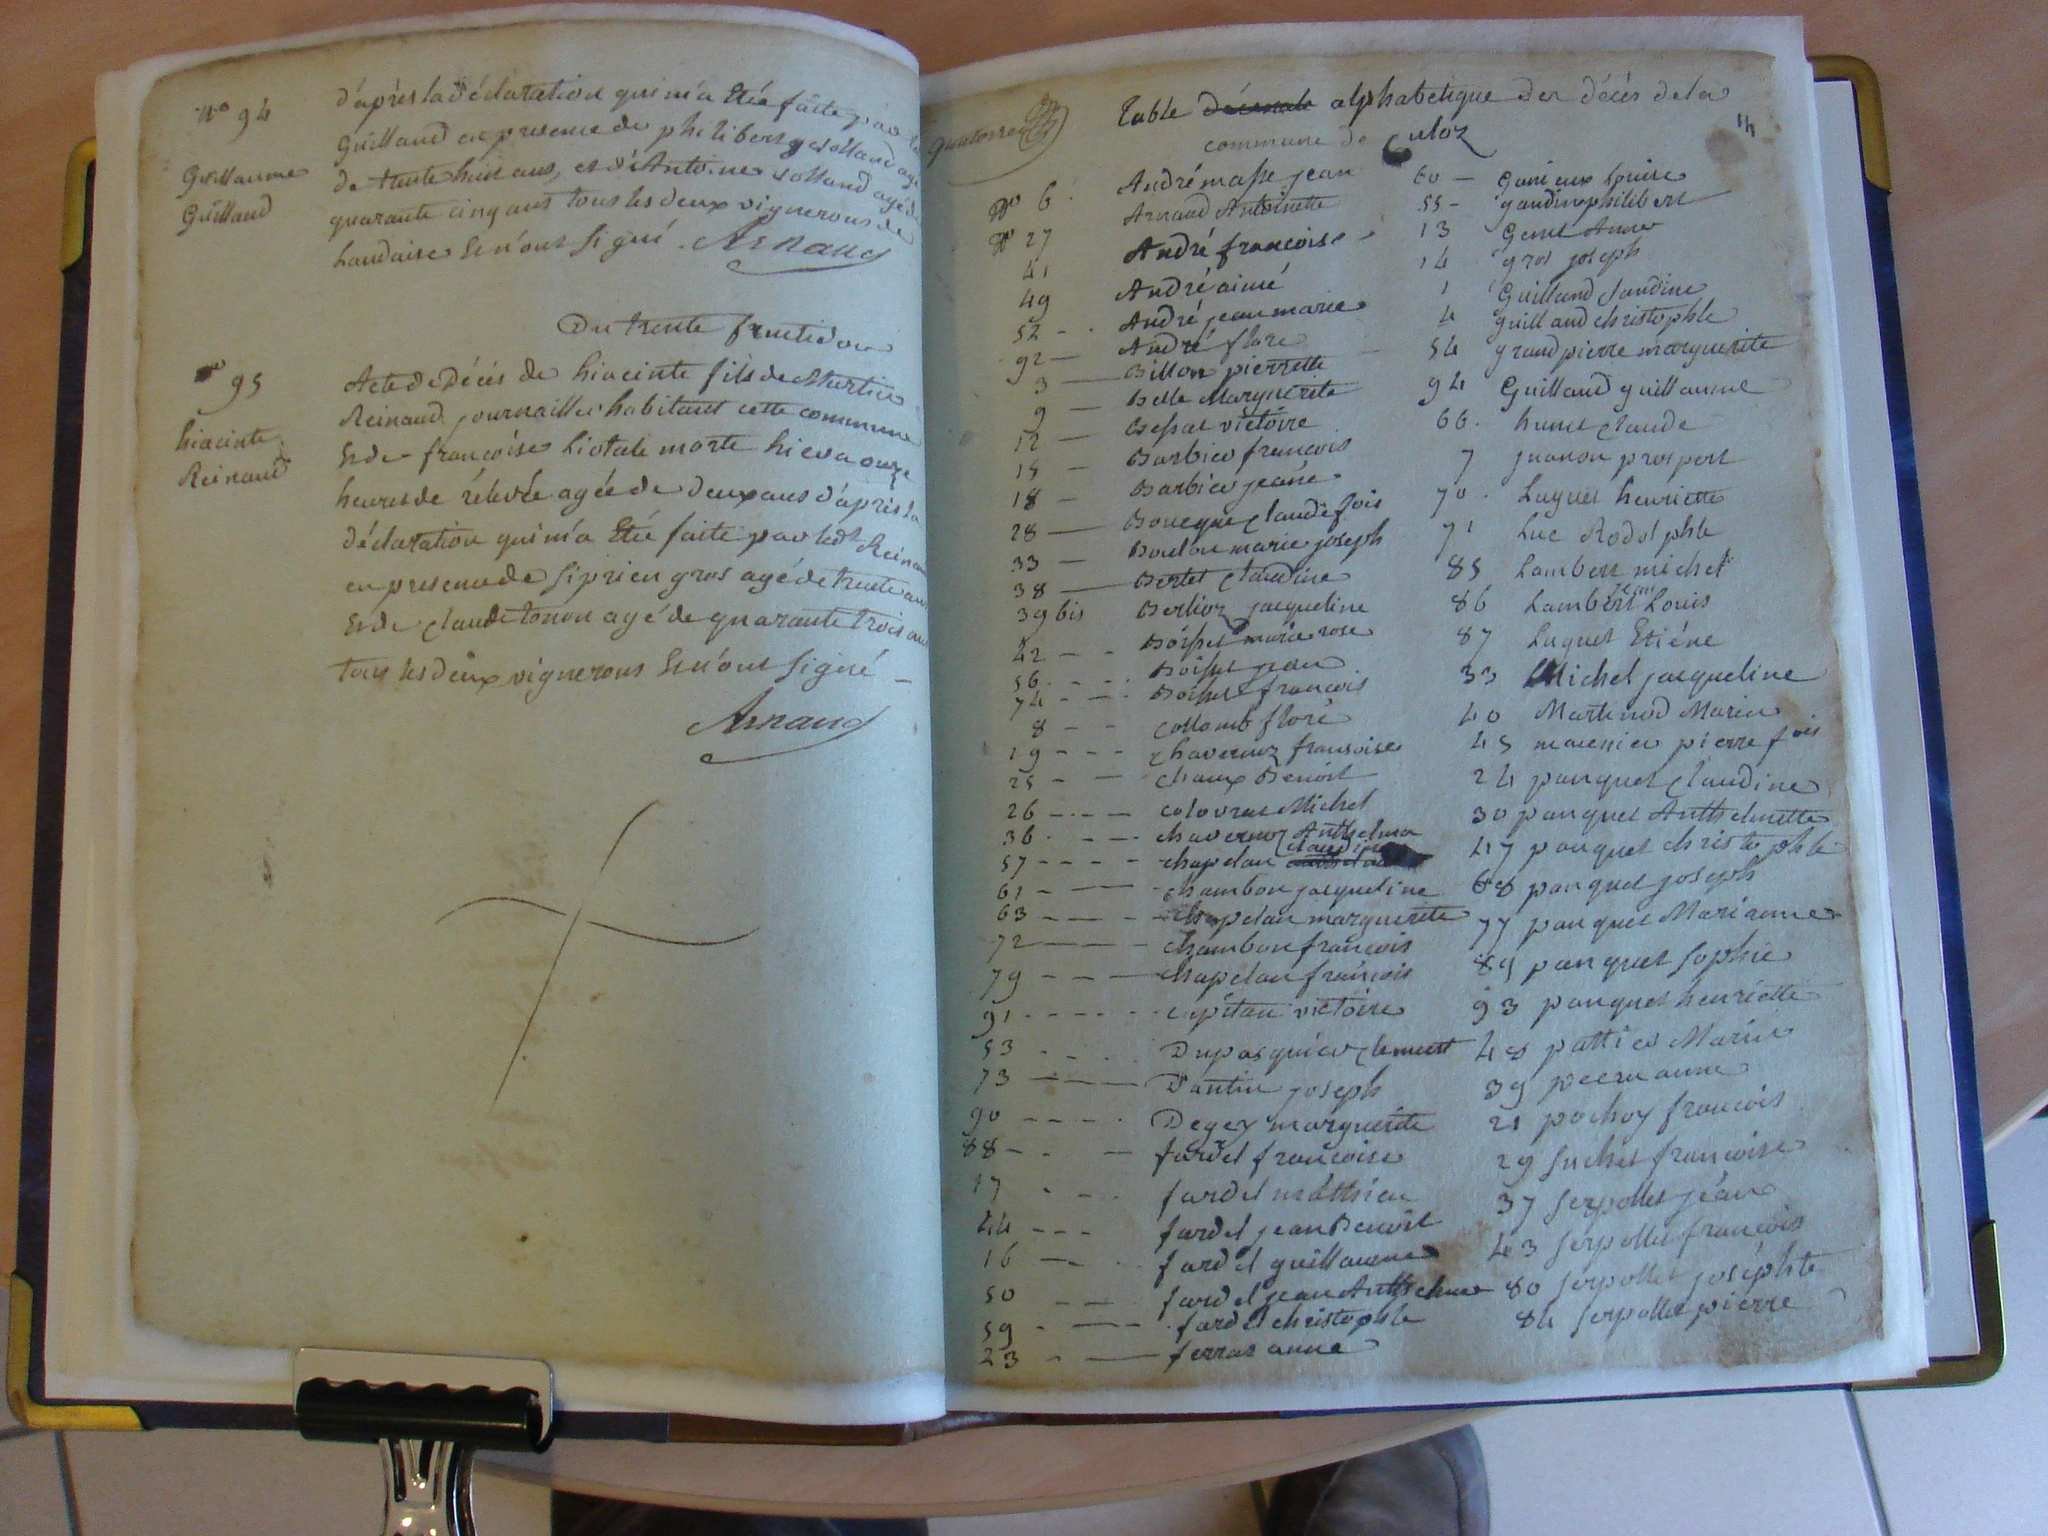 No 94
Guillaume
Guilland
d'après la déclaration qui m'a Etée faitte par le
Guilland en presence de philibert solland agé
de trente huit ans, et d'Antoine solland agé de
quarante cinq ans tous les deux vignerons de
Landaise Et n'ont signé. Arnaud
Du trente fructidor
no 95
hiacinte
Reinaud
Acte de Décés de hiacinte fils de Martin
Reinaud journaillier habitant cette commune
Et de françoise Liotale morte hier a onze
heures de rélevée agée de deux ans d'après la
déclaration qui m'a Etée faite par ledt Reinaud
en presence de siprien gros agé de trente ans
Et de claude tonon agé de quarante trois ans
tous les deux vignerons Et n'ont signé
Arnaud
quatorze
Table décenale alphabetique des décés de la
commune de Culoz
14
No 6 André masse jean
No 27 Arnaud Antoinette
41 André françoise
49 André aimé
52 André jean marie
92 André flore
3 Billon pierrette
9 Belle Marguerite
12 victoire
15 Barbier francois
18 Barbier jeane
28 claude fois
33 marie joseph
38 Bertet claudine
39 bis Berlioz jacqueline
42 Boisset marie rose
56 Boisset jean
74 Boisset francois
8 collomb flore
19 chavernoz fransoise
25 chaux Benoit
26 Michel
36 chavernoz Anthelma
57 chapelan claudine
61 chambon jacqueline
63 chapelan marguerite
72 chambon francois
79 chapelan francois
91 capitan victoire
53 Dupasquier clement
73 Dantin joseph
90 Degex marguerite
88 fardel francoise
17 fardel mathieu
44 fardel jean Benoit
16 fardel guillaume
50 fardel jean Anthelme
59 fardel christophle
23 ferras anne
60 Louise
55 gaudin philibert
13 Genet Anne
14 gros joseph
1 Guilland
4 guilland christophle
54 grandpierre marguerite
94 Guilland guillaume
66 claude
7 juanon prospert
70 Luquet henriette
71 Luc Rodolphe
85 Lambert michel
86 Lambert jean Louis
87 Luquet Etiéne
33 Michel jacqueline
40 Martinod Marie
45 marnier pierre fois
24 panquet claudine
30 panquet Anthelmette
47 panquet christophle
68 panquet joseph
77 panquet Marianne
89 panquet sophie
93 panquet henriette
48 pattier Marie
39 anne
21 pochoy francois
29 suchet francoise
37 serpollet jéan
43 serpollet francois
80 serpollet joséphte
84 serpollet pierre